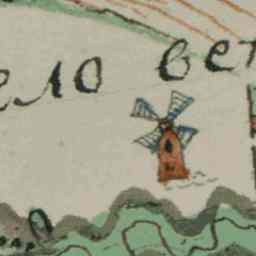 ело вет